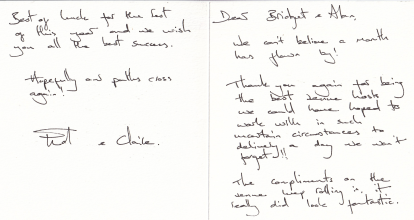 Dear Bridget & Alan,
We can't believe a month
has flown by!
Thank you again for being
the best venue hosts
we could have hoped to
work with in such
uncertain circumstances to
delivery a day we won't
forget!!
The compliments on the
venue keep rolling in, it
really did look fantastic.
Best of luck for the rest
of this year and we wish
you all the best success.
Hopefully our paths cross
again!
& Claire.